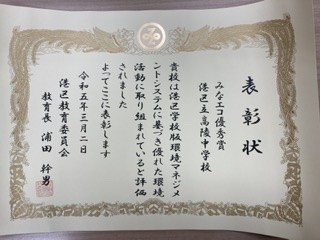 表彰状
みなとエコ優秀賞
港区立高陵中学校
貴校は港区学校版環境マネジメ
ントシステムに基づき優れた環境
活動に取り組まれていると評価
されました
よってここに表彰します
令和五年三月二日
港区教育委員会
教育長 浦田 幹男